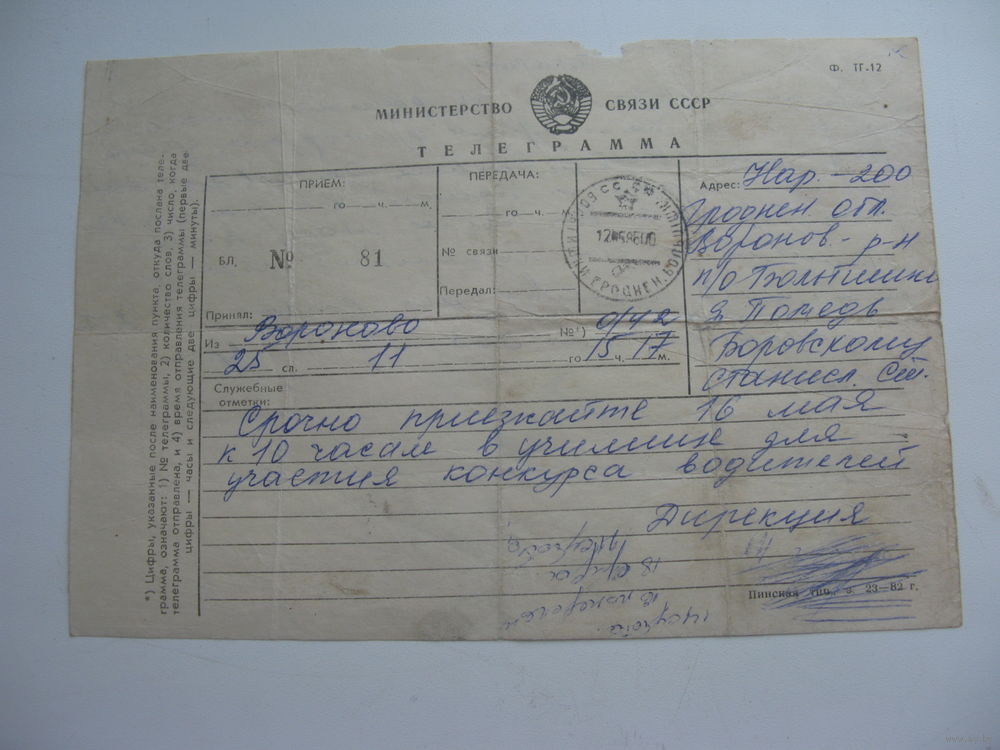 Ф. ТГ-12
МИНИСТЕРСТВО СВЯЗИ СССР
ТЕЛЕГРАММА
ПРИЕМ:
го ч. м.
БЛ, № 81
Принял:
ПЕРЕДАЧА:
го ч. м.
№ связи
Передал:
Адрес: Нар. - 200
Гроднен. обл.
Воронов - р-н
п/о
д.
Боровскому
станисл. Ст.
Из Вороново №*)
25 сл. 11 го 15 ч. 17 м.
Служебные
отметки:
Срочно приезжайте 16 мая
к 10 часам в училище для
участия конкурса водителей
Дирекция
Пинская тип., з. 23—82 г.
*) Цифры, указанные после наименования пункта, откуда послана теле-
грамма, означают: 1) № телеграммы, 2) количество слов, 3) число, когда
телеграмма отправлена, и 4) время отправления телеграммы (первые две
цифры — часы и следующие две цифры — минуты).